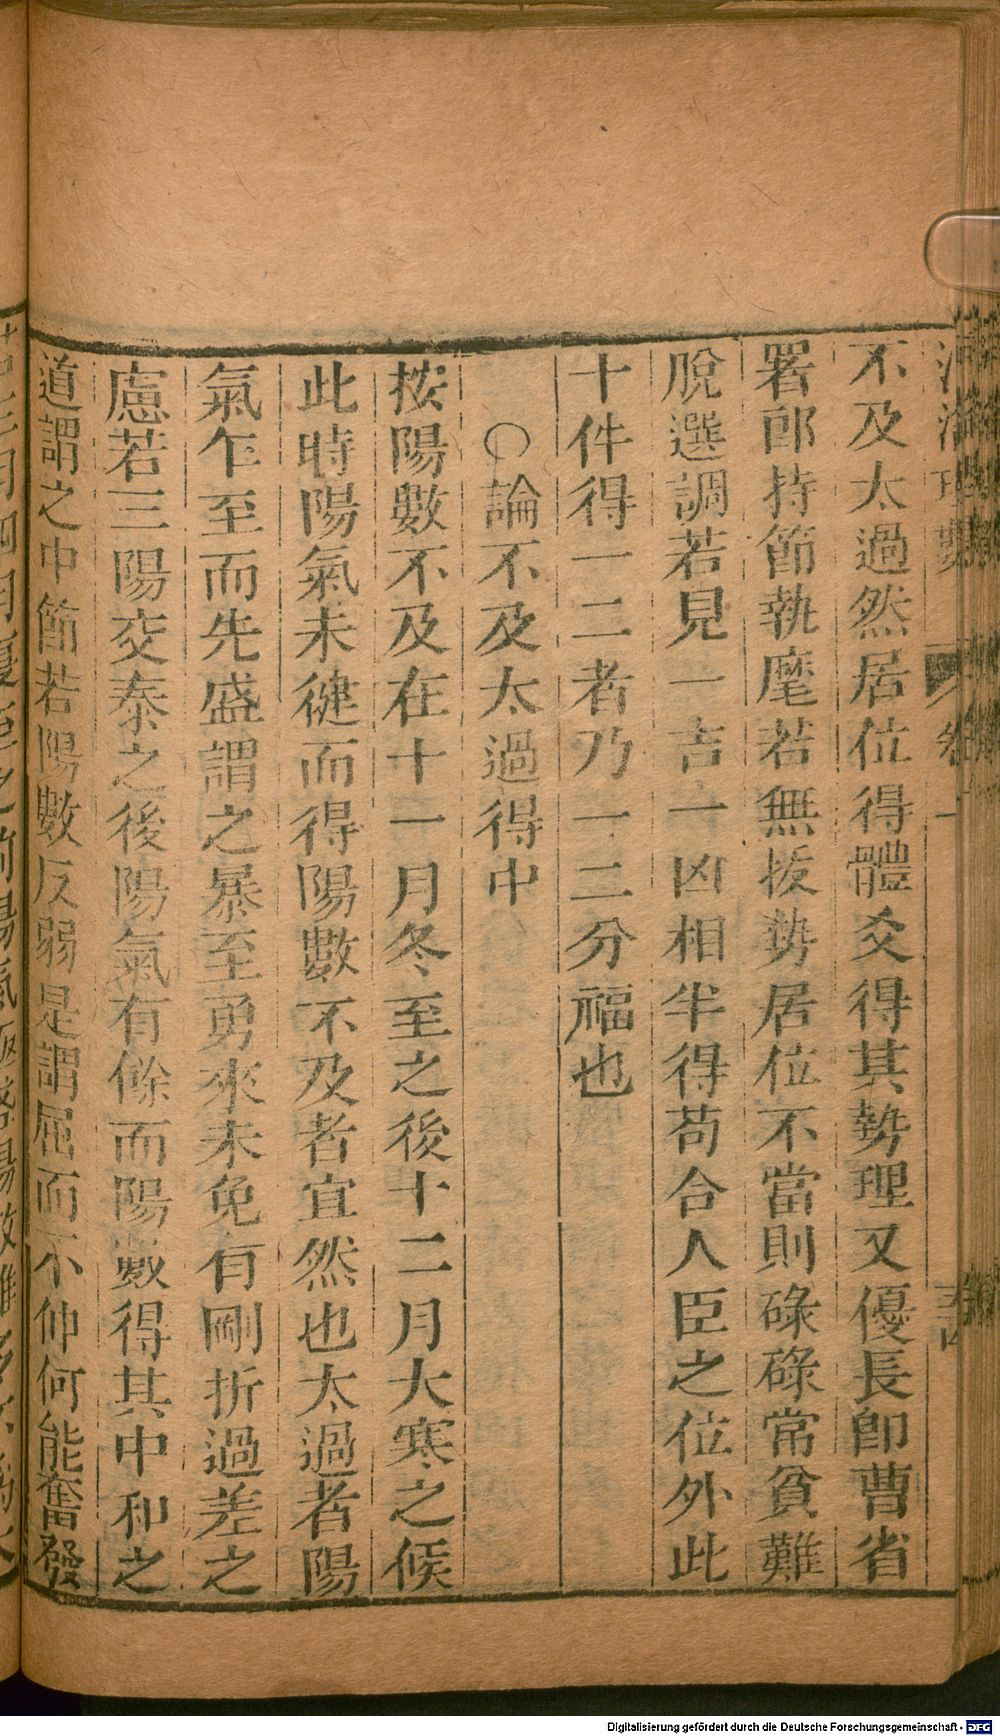 不及太過然居位得體爻得其勢理又優長郎曹省
署郎持節執麾若無援勢居位不當則碌碌常貧難
脫選調若見一吉一凶相半得苟合人臣之位外此
十件得一二者乃一二分福也
○論不及太過得中
按陽數不及在十一月冬至之後十二月大寒之候
此時陽氣未健而得陽數不及者宜然也太過者陽
氣乍至而先盛謂之暴至勇來未免有剛折過差之
慮若三陽交泰之後陽氣有餘而陽數得其中和之
道謂之中節若陽數反弱是謂屈而不伸何能奮發
Digitalisierung gefördert durch die Deutsche Forschungsgemeinschaft - DFG